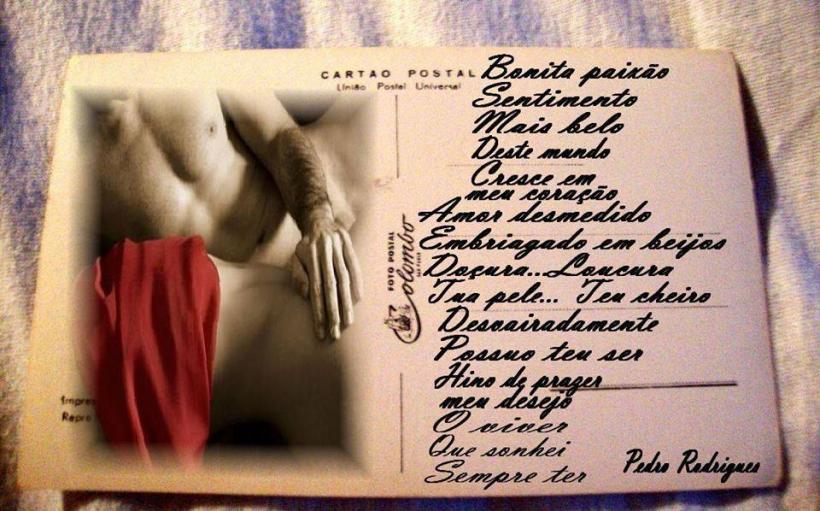 CARTAO POSTAL
União Postal Universal
Bonita paixão
Sentimento
Mais belo
Deste mundo
Cresce em
meu coração
Amor desmedido
Embriagado em beijos
Doçura...Loucura
Tua pele... Teu cheiro
Desvairadamente
Possuo teu ser
Hino de prazer
meu desejo
O viver
Que sonhei
Sempre ter
Pedro Rodrigues
FOTO POSTAL
Colombo
Impres
Repro